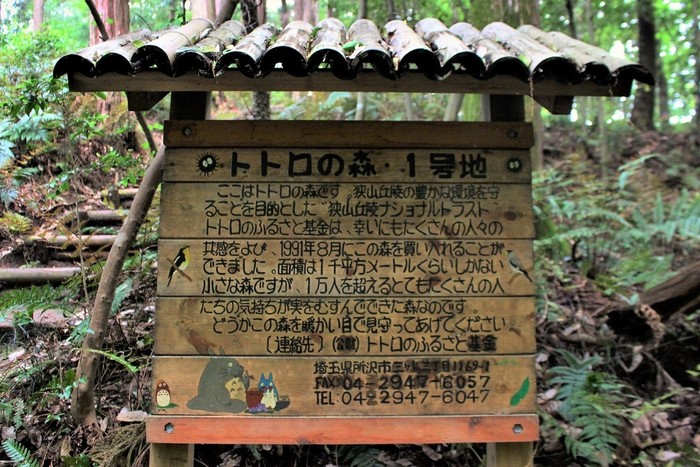 トトロの森・1号地
ここはトトロの森です。狭山丘陵の豊かな環境を守
ることを目的とした"狭山丘陵ナショナルトラスト"
トトロのふるさと基金は、幸いにもたくさんの人々の
共感をよび、1991年8月にこの森を買い入れることが
できました。面積は1千平方メートルくらいしかない
小さな森ですが、1万人を超えるとてもたくさんの人
たちの気持ちが実をむすんでできた森なのです。
どうかこの森を暖かい目で見守ってあげてください
(連絡先)(公財)トトロのふるさと基金
埼玉県所沢市三ケ島三丁目1169-1
FAX:04-2947-6057
TEL:04-2947-6047